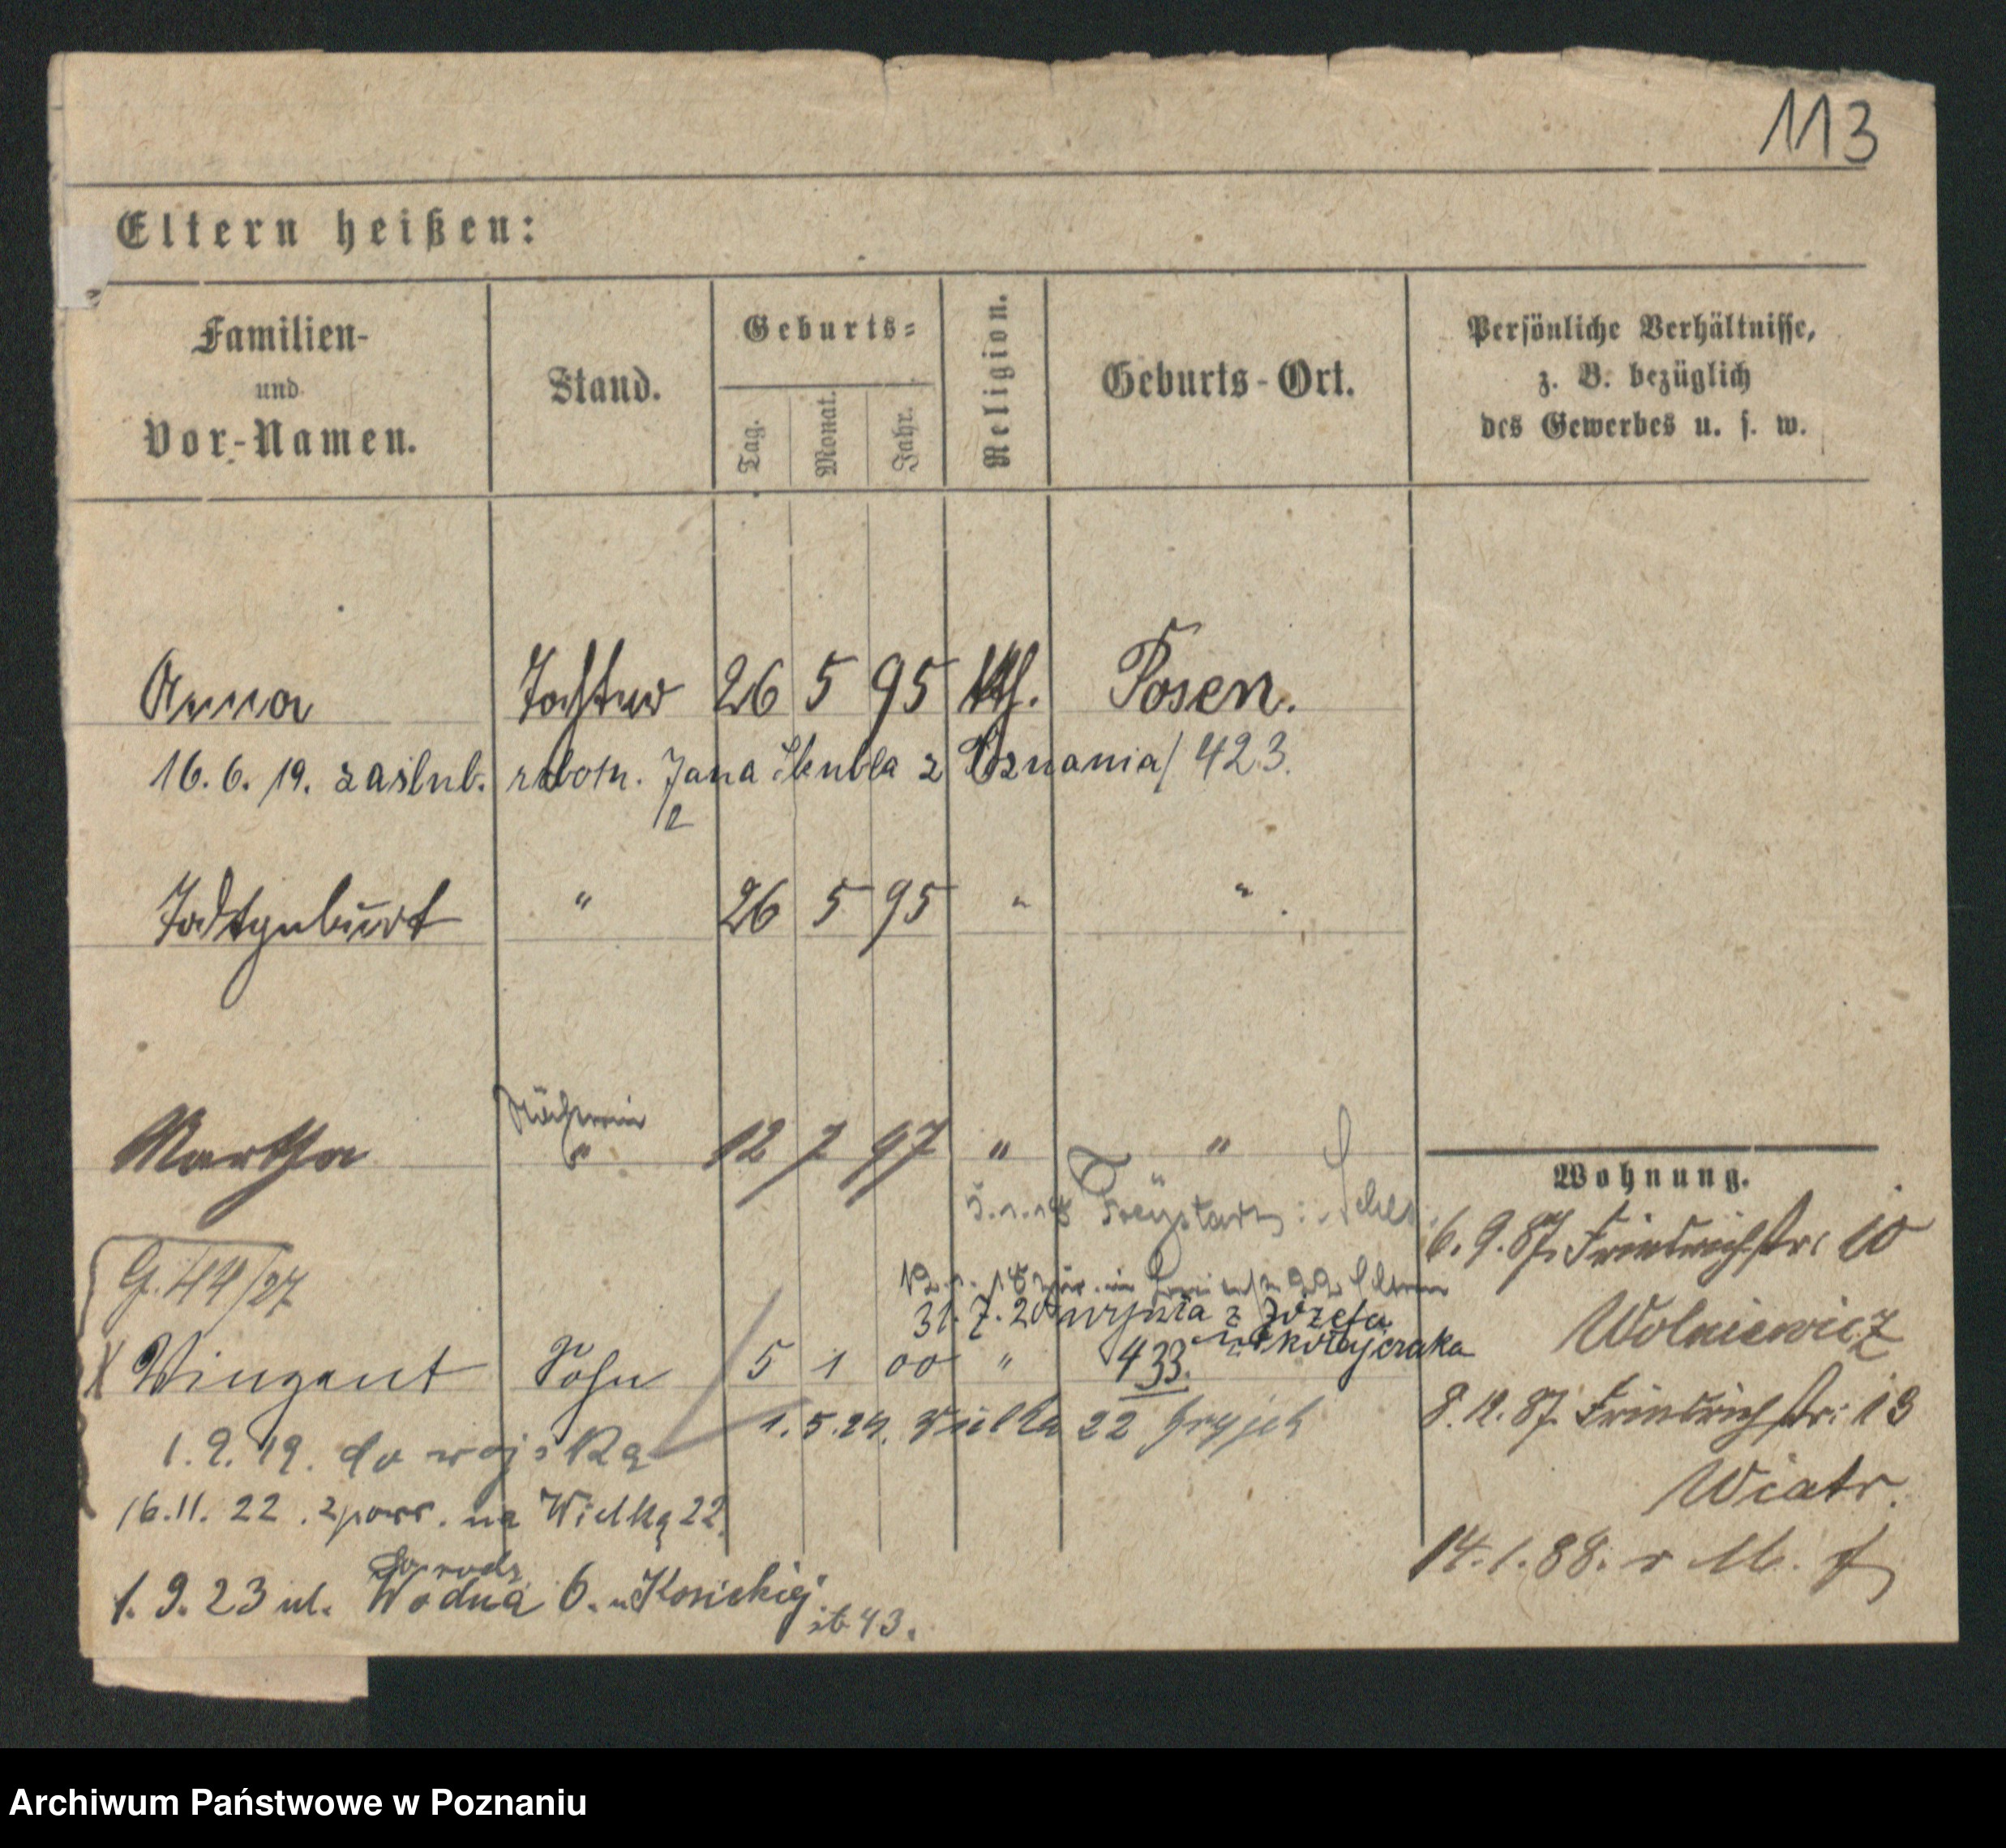 113
Eltern heißen:
Familien-
und
Vor-Namen.
Stand.
Geburts-
Tag.
Monat.
Jahr.
Religion.
Geburts-Ort.
Persönliche Verhältnisse,
z. B. bezüglich
des Gewerbes u. s. w.
Anna Tochter 26 5 95 kth. Posen.
16. 6. 19. zaślub. robotn. Jana z Poznania/ 423.
Todtgeburt " 26 5 95 " "
Näherin
Martha " 12 7 97 " "
Wohnung.
6. 9. 87. Friedrichstr: 10
G. 44/27
31. 7. 20 z Józefa
Wolniewicz
X Vinzent Sohn 5 1 00 " 433.
8. 12. 87. Friedrichstr: 13
1. 5. 24. Wielka 22
1. 2. 19. do wojska
Wiatr.
16. 11. 22. na Wielką 22.
14. 1. 88. v M.
1. 9. 23 ul. Wodna 6. u Kosickiej
43.
Archiwum Państwowe w Poznaniu